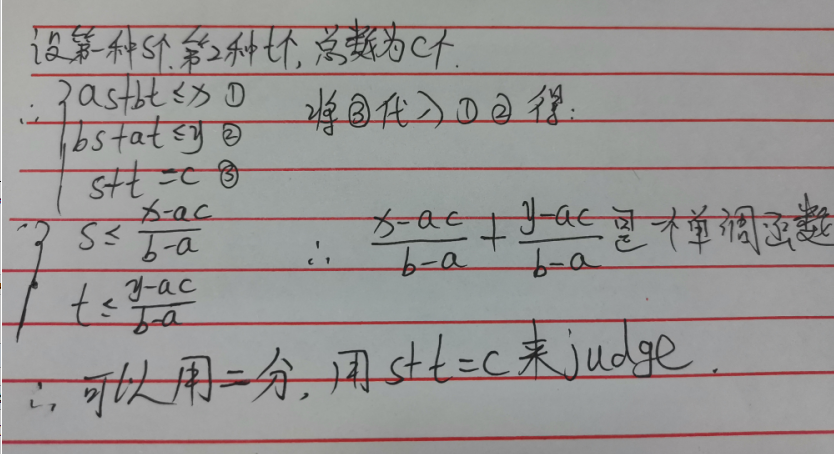 设第一种s个,第2种t个,总数为c个.
∴ { as+bt≤x ①
bs+at≤y ②
s+t=c ③
将③代入①②得:
{ s≤(x-ac)/(b-a)
t≤(y-ac)/(b-a)
∴ (x-ac)/(b-a) + (y-ac)/(b-a) 是一个单调函数
∴ 可以用二分,用s+t=c来judge.